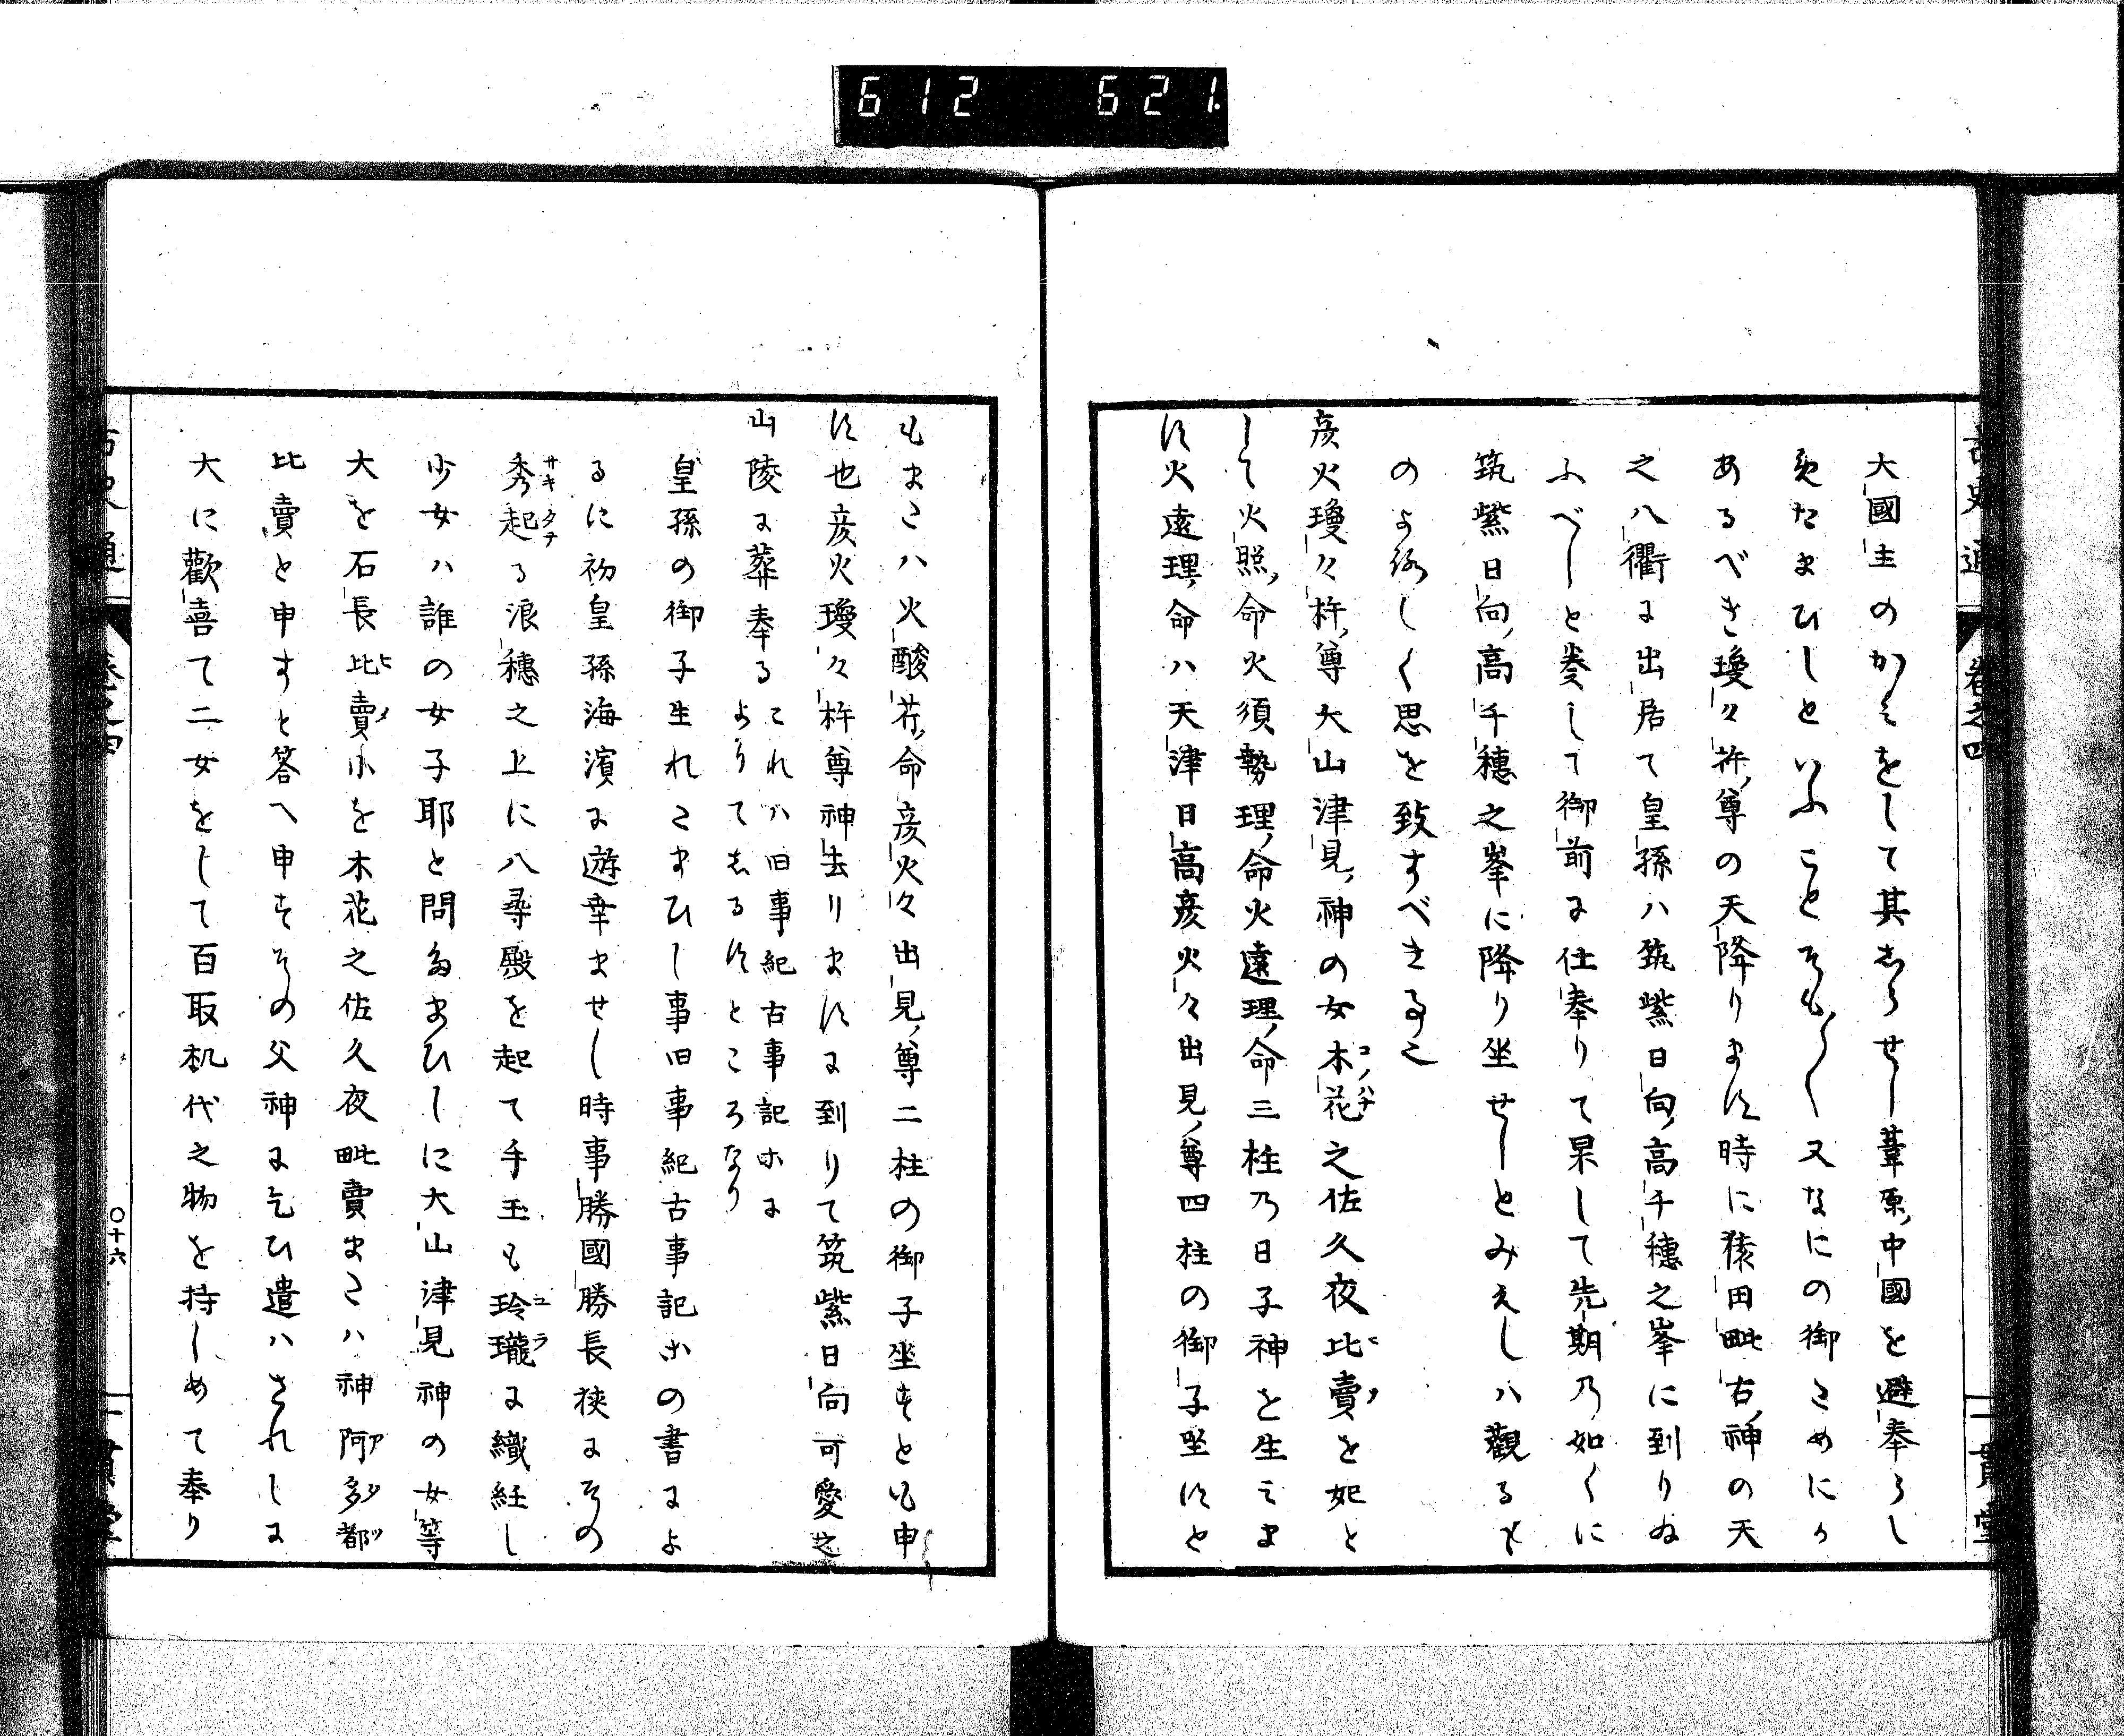 612 621.
古史通 卷之四 一貫堂
大國主のかみをして其しらせし葦原中國を避奉らし
めたまひしといふことそも〳〵又なにの御ためにか
あるべき瓊々杵尊の天降ります時に猿田毗古神の天
之八衢に出居て皇孫ハ筑紫日向高千穗之峯に到りぬ
ふべしと誉して御前に仕奉りて果して先期乃如くに
筑紫日向高千穗之峯に降り坐せしとみえしハ觀るも
のよろしく思を致すべき事也
彦火瓊々杵尊大山津見神の女木花之佐久夜比賣を妃と
コノハナ ヒメ
して火照命火須勢理命火遠理命三柱乃日子神を生ミま
す火遠理命ハ天津日高彦火々出見尊四柱の御子坐すと
もまたハ火酸芹命彦火々出見尊二柱の御子坐すとも申
す也彦火瓊々杵尊神去りますに到りて筑紫日向可愛之
山陵に葬奉る
これハ旧事紀古事記等に
よりてしるすところなり
皇孫の御子生れたまひし事旧事紀古事記等の書によ
るに初皇孫海濱に遊幸ませし時事勝國勝長狹にその
秀起る浪穗之上に八尋殿を起て手玉も玲瓏に織紝し
サキタテ ユラ
少女ハ誰の女子耶と問たまひしに大山津見神の女等
大を石長比賣小を木花之佐久夜毗賣またハ神阿多都
ヒメ アタツ
比賣と申すと答へ申すその父神に乞ひ遣ハされしに
大に歡喜て二女をして百取机代之物を持しめて奉り
古史通 卷之四 〇十六 一貫堂